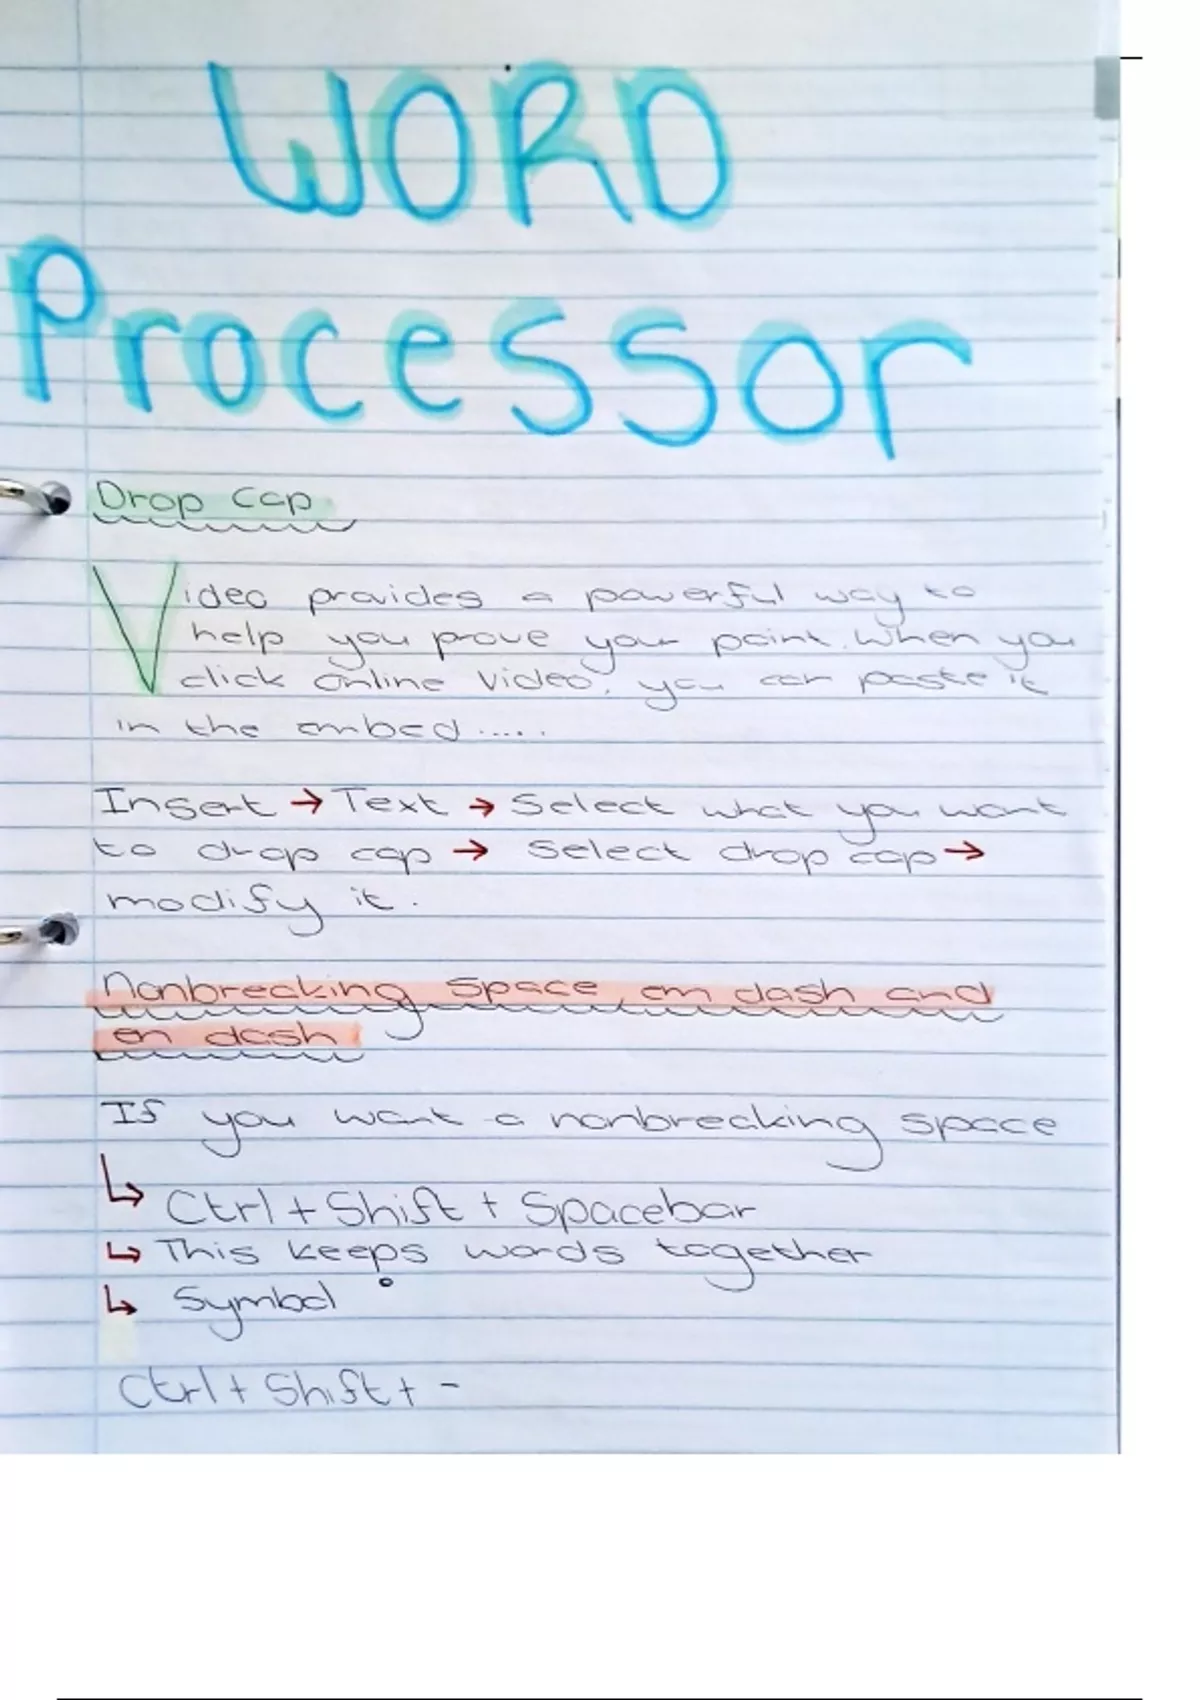 WORD
Processor
Drop Cap
Video provides a powerful way to
help you prove your point. When you
click Online Video, you can paste it
in the embed .....
Insert → Text → Select what you want
to drop cap → Select drop cap →
modify it.
Nonbreaking space, em dash and
en dash
If you want a nonbreaking space
↳ Ctrl + Shift + Spacebar
↳ This keeps words together
↳ Symbol °
Ctrl + Shift + -